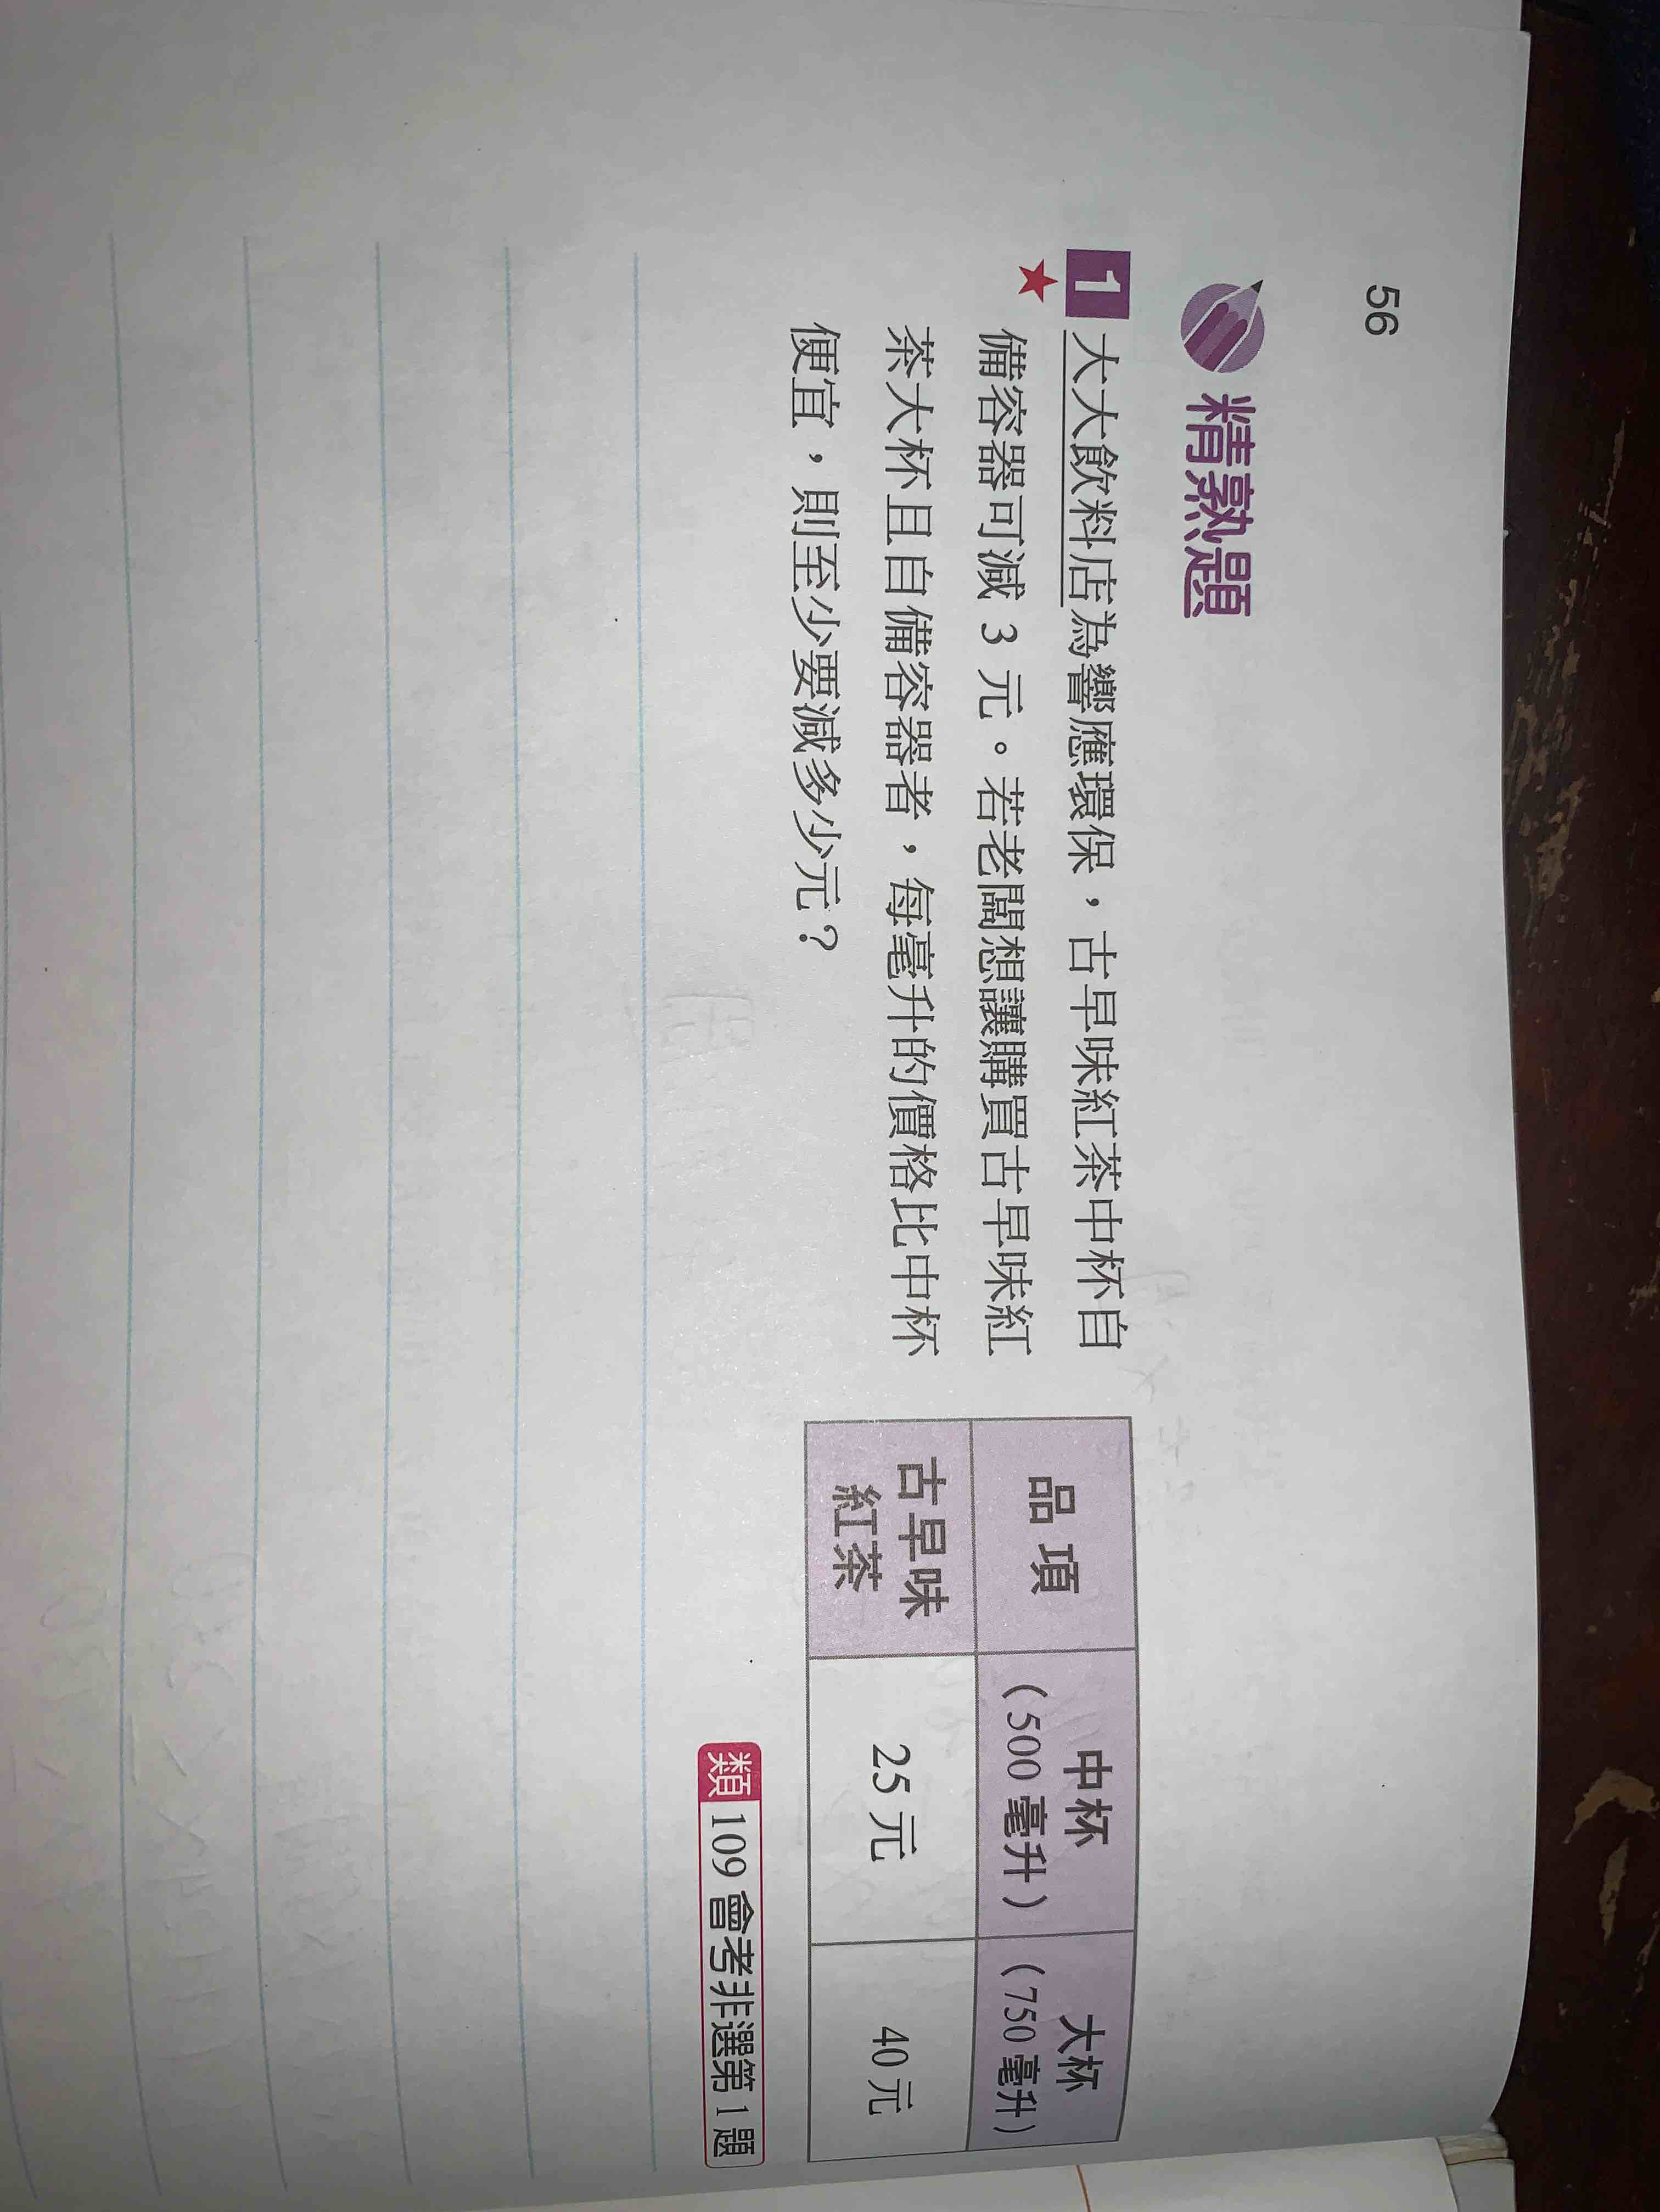 56
精熟題
1 大大飲料店為響應環保，古早味紅茶中杯自
備容器可減 3 元。若老闆想讓購買古早味紅
茶大杯且自備容器者，每毫升的價格比中杯
便宜，則至少要減多少元？
品項 中杯（500 毫升） 大杯（750 毫升）
古早味紅茶 25 元 40 元
類 109 會考非選第 1 題